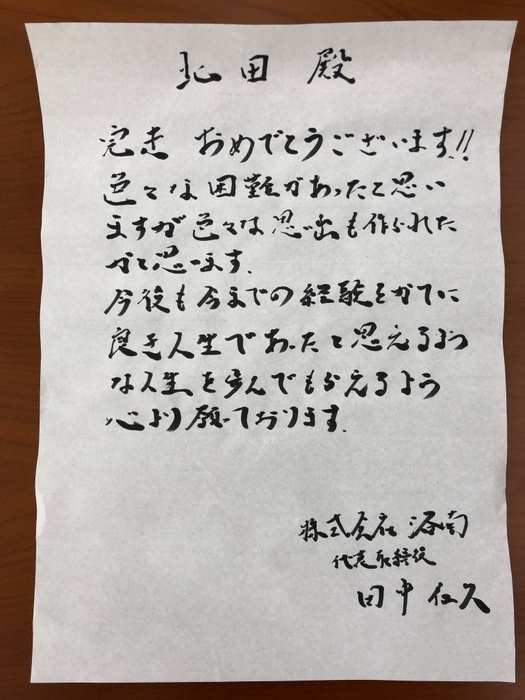 北田 殿
完走 おめでとうございます!!
色々な困難があったと思い
ますが色々な思い出も作られた
かと思います。
今後も今までの経験をかてに
良き人生であったと思えるよう
な人生を歩んでもらえるよう
心より願っております。
株式会社 海南
代表取締役
田中 仁久